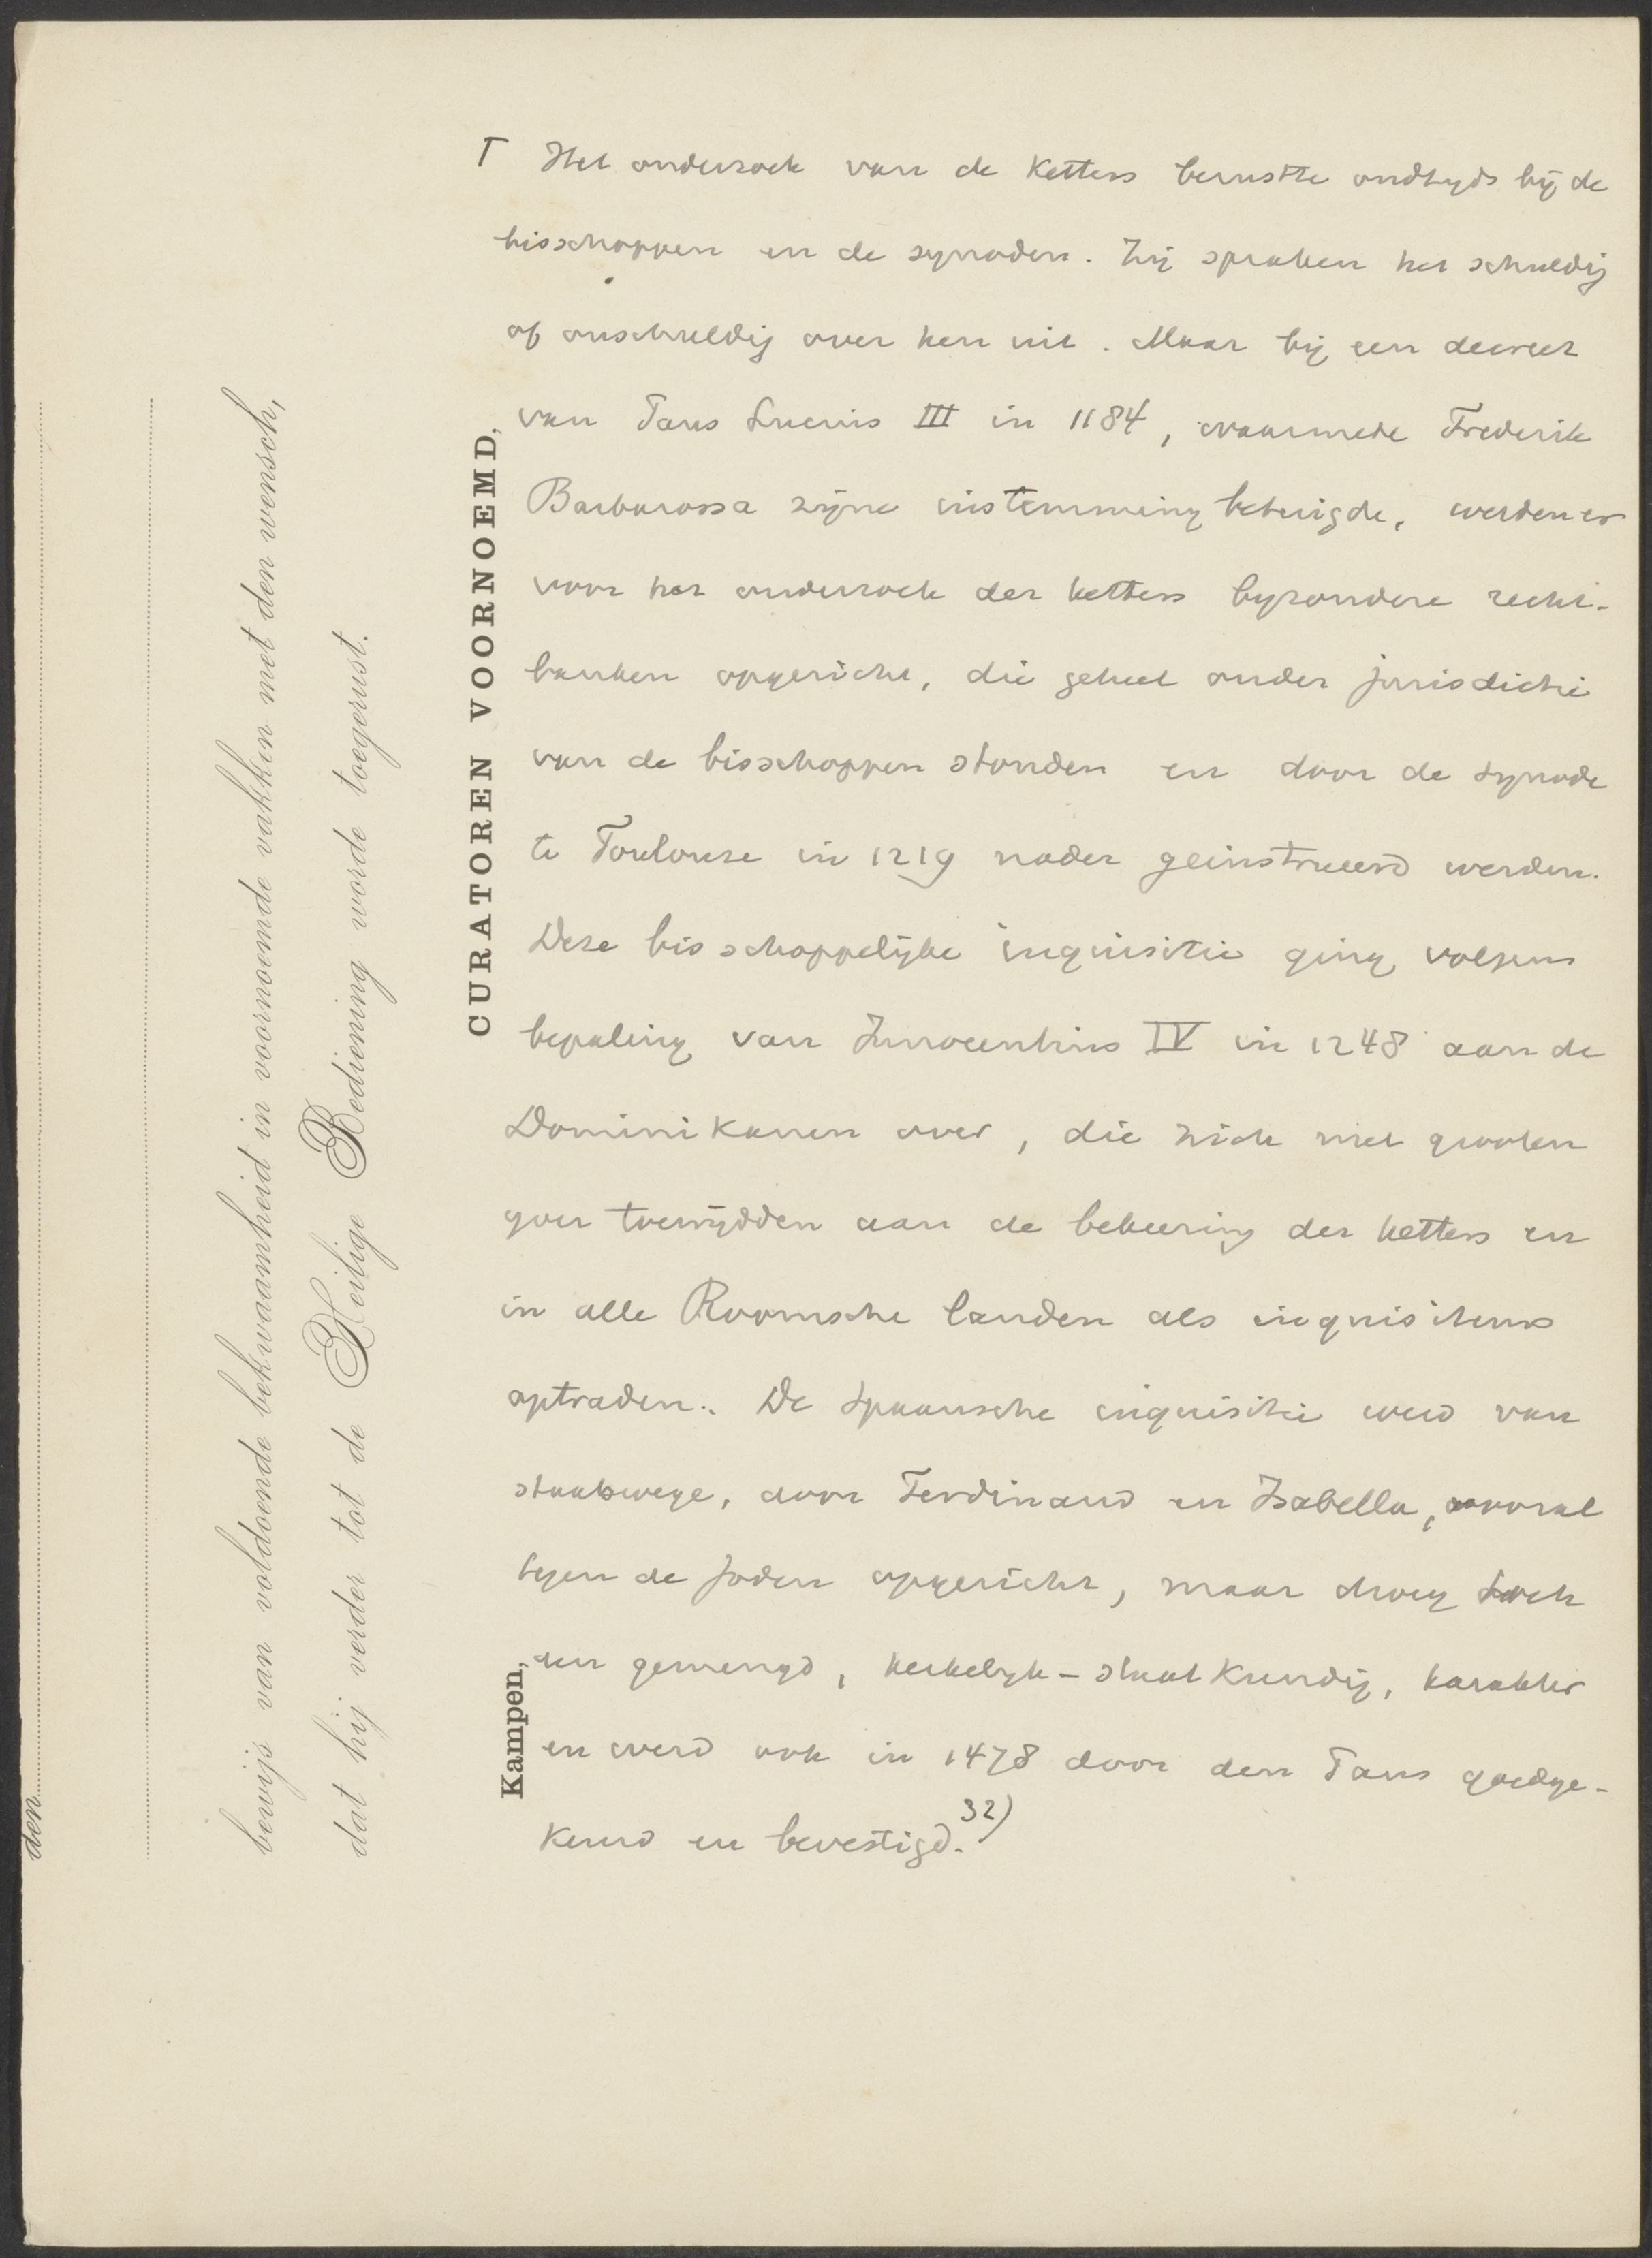 Γ Het onderzoek van de Ketters berustte oudtyds bij de
bisschoppen en de synoden. Zij spraken het schuldig
of onschuldig over hen uit. Maar bij een decreet
van Paus Lucius III in 1184, waarmede Frederik
Barbarossa zijne instemming betuigde, werden er
voor het onderzoek der ketters byzondere recht-
banken opgericht, die geheel onder jurisdictie
van de bisschoppen stonden en door de synode
te Toulouse in 1219 nader geinstrueerd werden.
Deze bisschoppelijke inquisitie ging volgens
bepaling van Innocentius IV in 1248 aan de
Dominikanen over, die zich met grooten
yver toewijdden aan de bekeering der ketters en
in alle Roomsche landen als inquisiteurs
optraden. De Spaansche inquisitie werd van
staatswege, door Ferdinand en Isabella, vooral
tegen de Joden opgericht, maar droeg toch
een gemengd, kerkelyk-staatkundig, karakter
en werd ook in 1478 door den Paus goedge-
keurd en bevestigd. 32)
CURATOREN VOORNOEMD,
Kampen,
dat hij verder tot de Heilige Bediening worde toegerust.
bewijs van voldoende bekwaamheid in voornoemde vakken met den wensch,
den